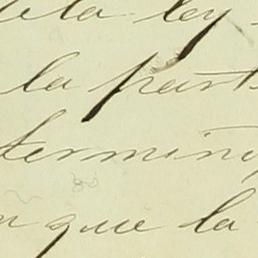 la ley
la part
termin
que la